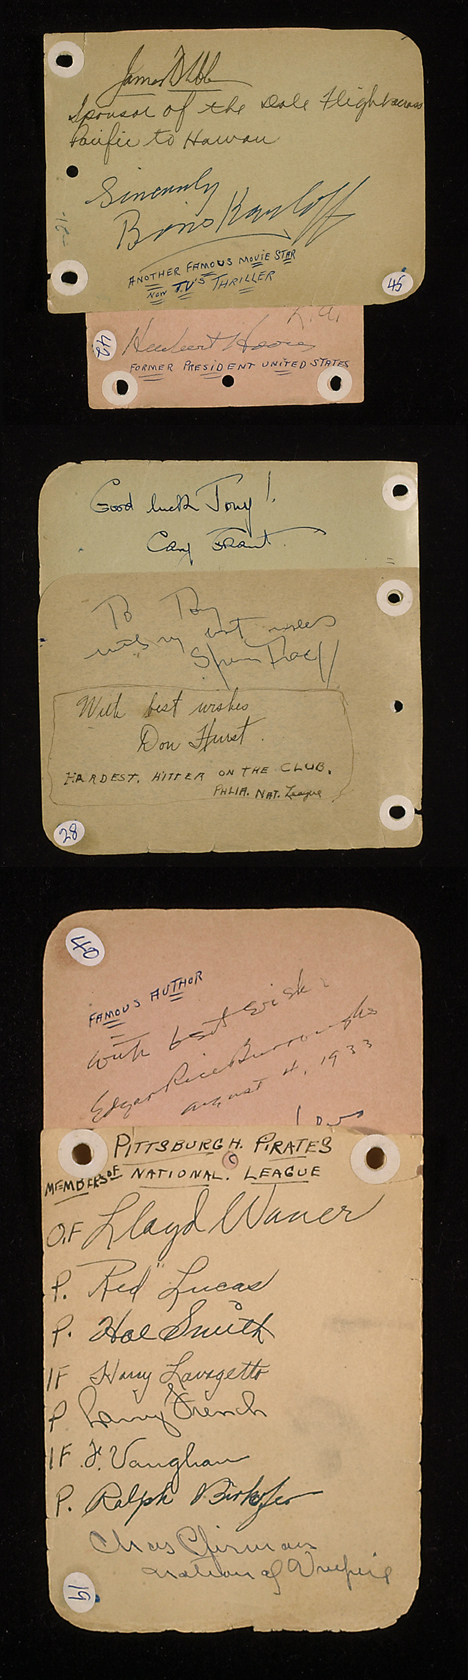 James D Dole
Sponsor of the Dole Flight across
Pacific to Hawaii
Sincerely
Boris Karloff
ANOTHER FAMOUS MOVIE STAR
NOW TV'S THRILLER
-12-
45
L.A.
42
Herbert Hoover
FORMER PRESIDENT UNITED STATES
Good luck Tony!
Cary Grant
To Tony
with my best wishes
Spencer Tracy
With best wishes
Don Hurst.
HARDEST. HITTER ON THE CLUB.
PHLIA. NAT. League
28
40
FAMOUS AUTHOR
With best wishes
Edgar Rice Burroughs
August 4, 1933
PITTSBURGH. PIRATES
MEMBERS OF NATIONAL. LEAGUE
O.F Lloyd Waner
P. "Red" Lucas
P. Hal Smith
IF Harry Lavagetto
P Larry French
IF. F. Vaughan
P. Ralph Birkofer
Chas
National Umpire
19